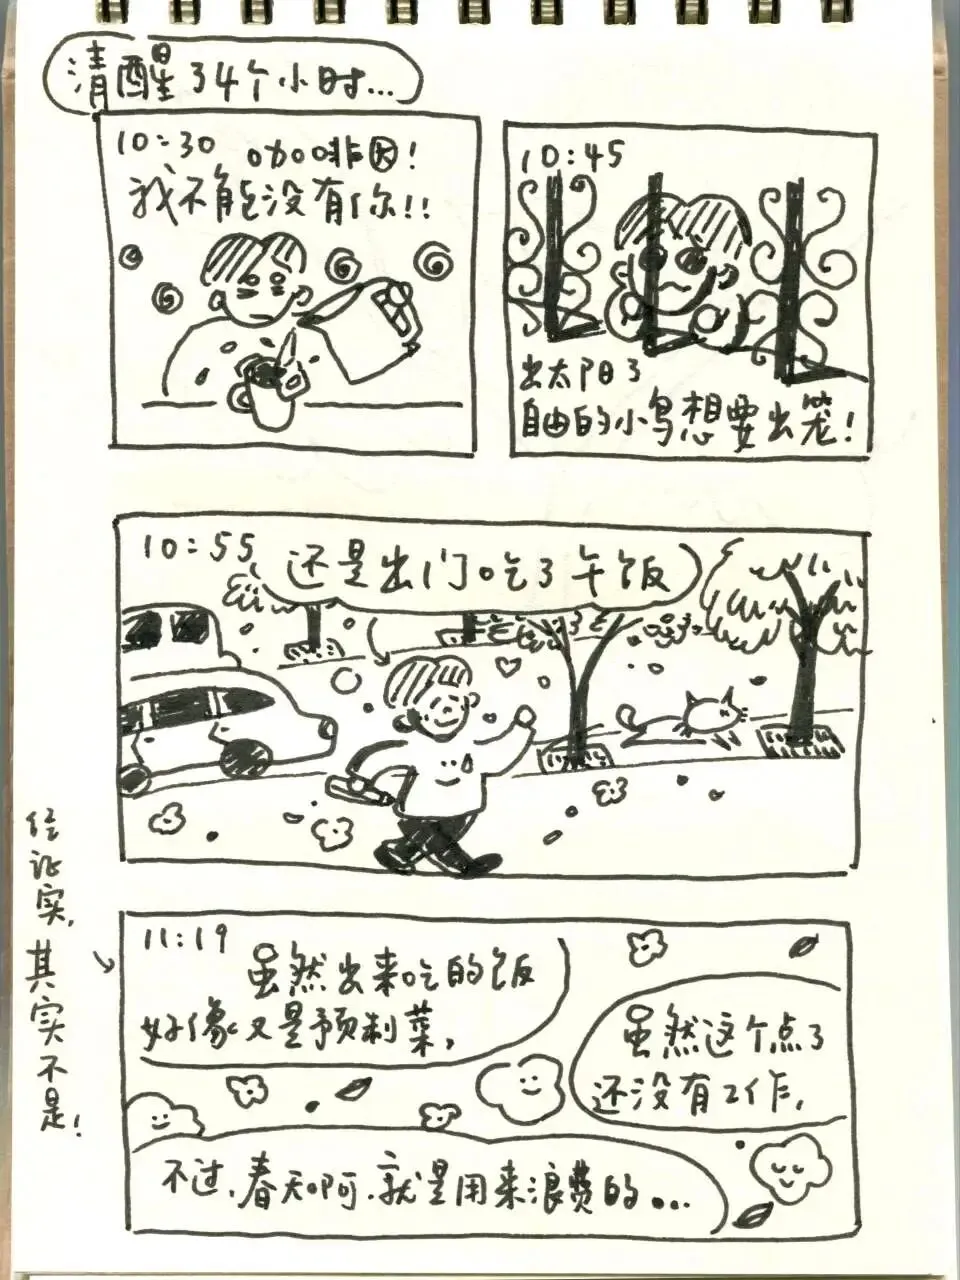 清醒了4个小时...
10:30 咖啡因!
我不能没有你!!
10:45
出太阳了
自由的小鸟想要出笼!
10:55
还是出门吃了午饭
经证实,其实不是!
11:19
虽然出来吃的饭
好像又是预制菜,
虽然这个点了
还没有工作,
不过,春天啊,就是用来浪费的...